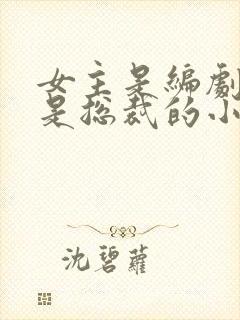 女主是編劇
是总裁的小
沈碧蘿